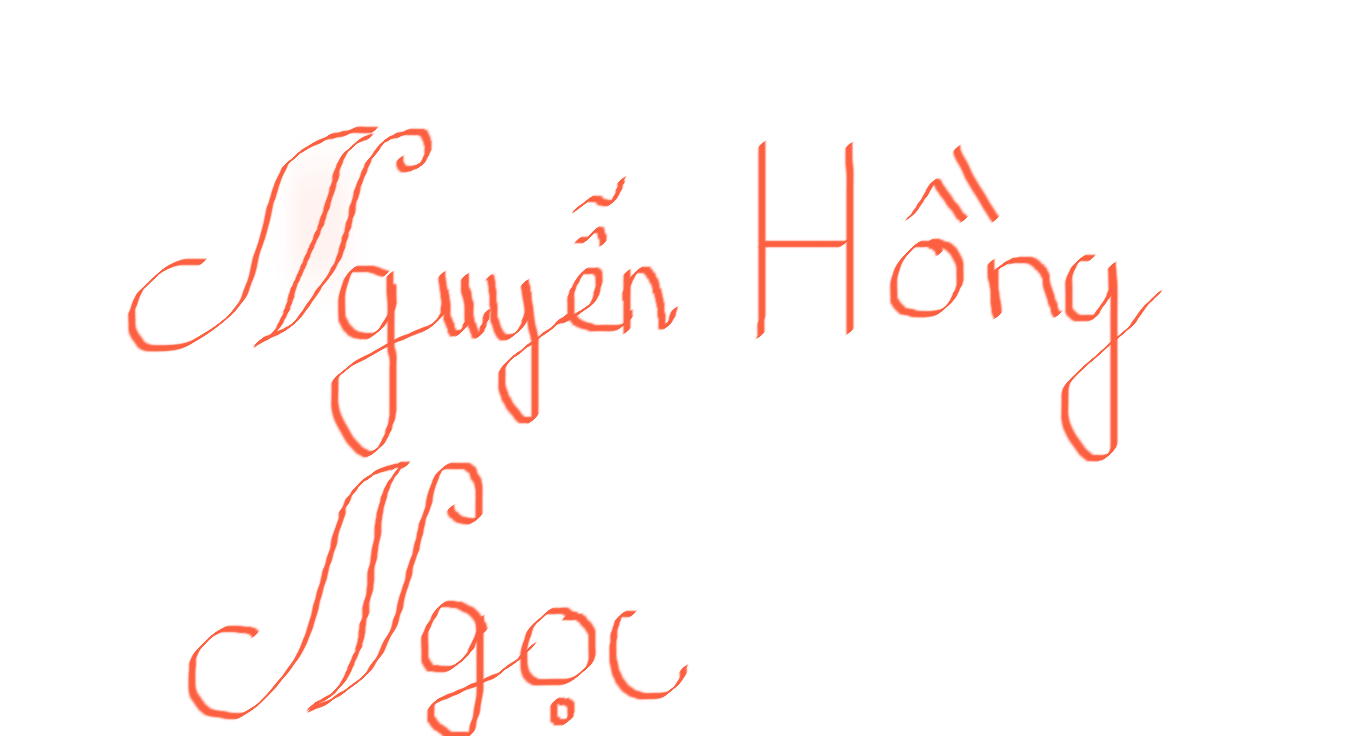 Nguyễn Hồng
Ngọc